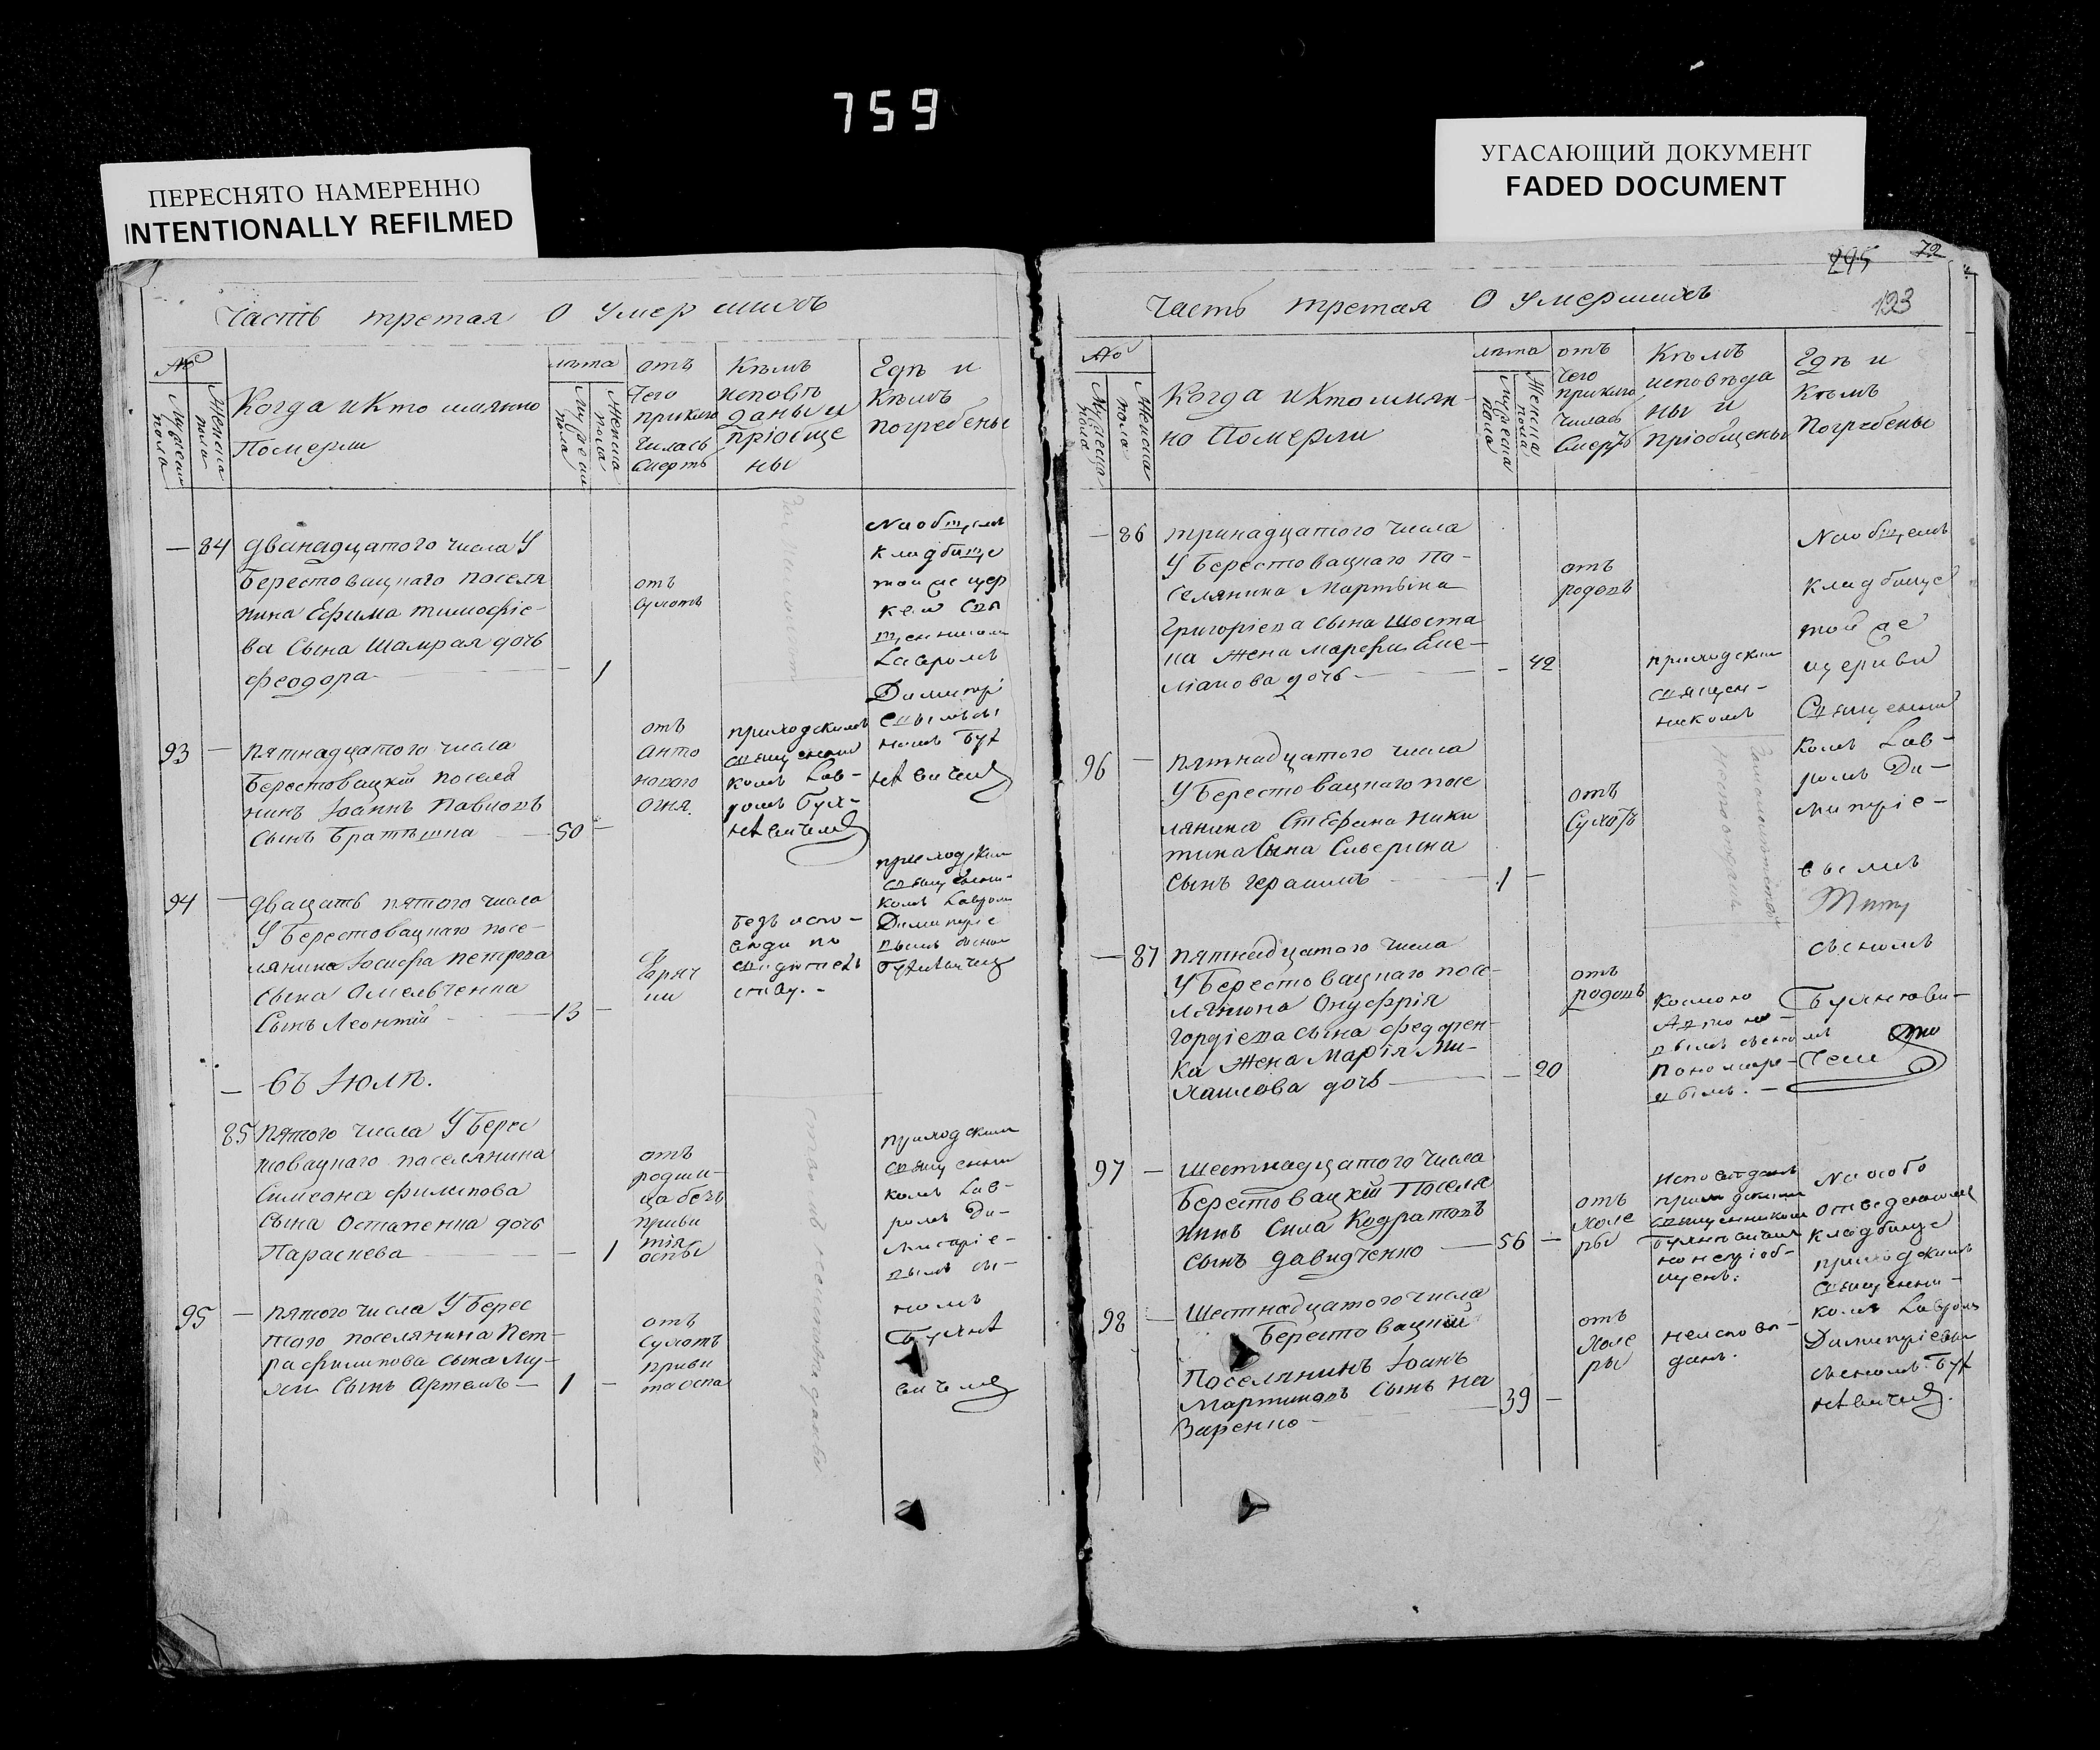 759
ПЕРЕСНЯТО НАМЕРЕННО
INTENTIONALLY REFILMED
УГАСАЮЩИЙ ДОКУМЕНТ
FADED DOCUMENT
Часть третая О Умер шихъ
№
Мужеска пола
Женска пола
Когда и Кто имянно
Померли
лѣта
Мужеска пола
Женска пола
отъ
Чего
приклю
чилась
смерть
Кѣмъ
исповѣ
даны и
пріобще
ны
Гдѣ и
Кѣмъ
погребены
— 84 дванадцатого числа У
Берестовацкаго поселя
нина Ефима тимофіе-
ва Сына Шамрая дочь
феодора — 1
отъ
сухотъ
За
На общемъ
кладбище
той же цер
кви Свя
щенником
Лавромъ
Димитрі
евымъ сы
номъ Бух
93 — пятнадцатого числа
Берестовацкій поселя
нинъ Іоаннъ Павловъ
сынъ Братѣшка — 50 —
отъ
анто
нового
огня.
приходскимъ
священни
комъ Лав-
ромъ Бух-
94 — двацать пятого числа
У Берестовацкаго посе-
лянина Іосифа петрова
сына Омельченка
Сынъ Леонтій — 13 —
горяч
ки
безъ испо-
веди по
ству. -
приходским
священни-
комъ Лавром
Димитріе
вымъ сыном
— Въ Іюлѣ.
85 пятого числа У Берес
товацкаго поселянина
Симеона филипова
сына Остапенка дочь
Параскева — 1
отъ
родим-
ца безъ
приви
тія
оспы
приходским
священни
комъ Лав-
ромъ Ди-
митріе-
вымъ сы-
номъ
95 — пятого числа У Берес
таго поселянина Пет-
ра филипова сына Му-
хи Сынъ Артемъ — 1 —
отъ
сухотъ
приви
та оспа
295 72
123
Часть третая О Умершихъ
№
Мужеска пола
Женска пола
Когда и Кто имян-
но Померли
лѣта
Мужеска пола
Женска пола
отъ
чего
приклю
чилась
Смерть
Кѣмъ
исповѣда
ны и
пріобщены
Гдѣ и
Кѣмъ
Погребены
— 86 тринадцатого числа
У Берестовацкаго по-
селянина Мартына
Григоріева сына Шоста
ка Жена Марфа Еме-
ліанова дочь — 42
отъ
родовъ
приходским
священ-
никомъ
На общемъ
кладбище
той же
церкви
Священни
комъ Лав-
ромъ Ди-
митріе-
вымъ
96 — пятнадцатого числа
У Берестовацкаго посе
лянина Стефана Ники
тина Сына Северина
сынъ герасимъ — 1 —
отъ
Сухотъ
— 87 пятнадцатого числа
У Берестовацкаго посе-
лянина Онуфрія
Гордіева сына федорен-
ка Жена Марія Ми-
хаилова дочь — 20
отъ
родовъ
Космою
пономаре-
вымъ. -
сыномъ
97 — Шестнадцатого числа
Берестовацкій Поселя
нинъ Сила Кодратовъ
сынъ давидченко — 56 —
отъ
холе
ры
Исповѣданъ
приходским
священником
но непріоб-
щенъ.
На особо
отведенномъ
кладбище
приходскимъ
священни-
комъ Лавромъ
Димитріевым
сыномъ Бух
98 — Шестнадцатого числа
Берестовацкій
Поселянинъ Іоанъ
Мартиновъ Сынъ На
Заренко — 39 —
отъ
холе
ры
неисповѣ-
данъ.